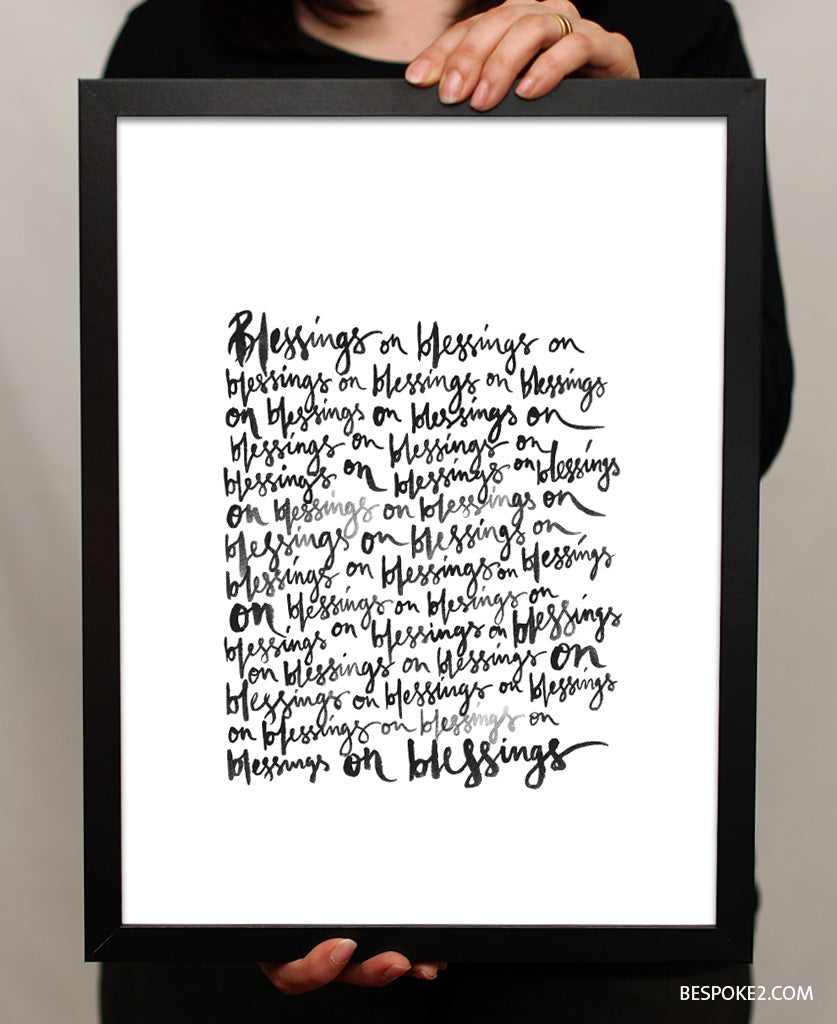 Blessings on blessings on
blessings on blessings on blessings
on blessings on blessings on
blessings on blessings on
blessings on blessings on blessings
on blessings on blessings on
blessings on blessings on
blessings on blessings on blessings
on blessings on blessings on
blessings on blessings on blessings
on blessings on blessings on
blessings on blessings on blessings
on blessings on blessings on
blessings on blessings
BESPOKE2.COM